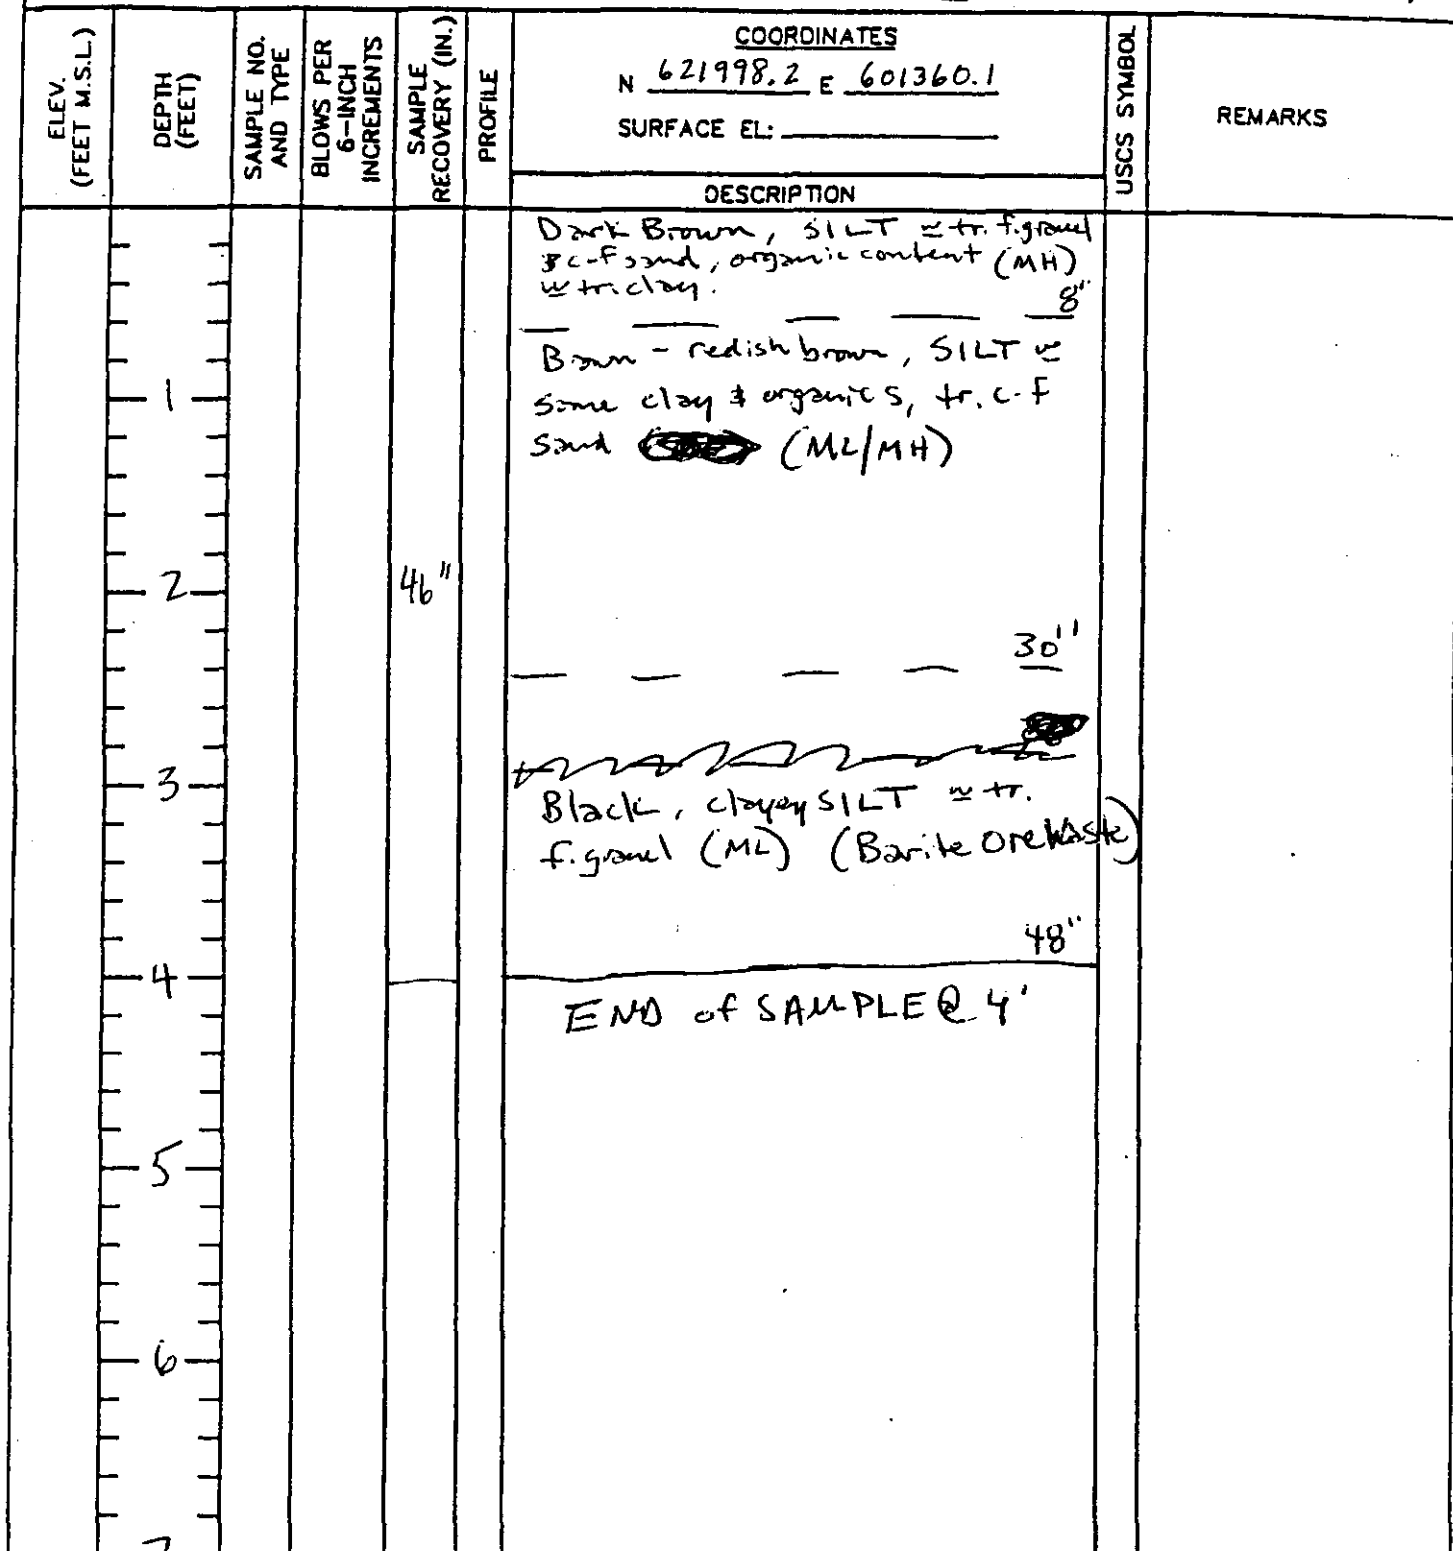 ELEV.
(FEET M.S.L.)
DEPTH
(FEET)
SAMPLE NO.
AND TYPE
BLOWS PER
6-INCH
INCREMENTS
SAMPLE
RECOVERY (IN.)
PROFILE
COORDINATES
N 621998.2 E 601360.1
SURFACE EL:
DESCRIPTION
USCS SYMBOL
REMARKS
Dark Brown, SILT w tr. f.gravel
& c-f sand, organic content (MH)
w tr. clay.
8"
Brown - redish brown, SILT w
1
some clay & organics, tr. c-f
sand (ML/MH)
2
46"
30"
3
Black, clayey SILT w tr.
f. gravel (ML) (Barite Ore Waste)
48"
4
END of SAMPLE @ 4'
5
6
7